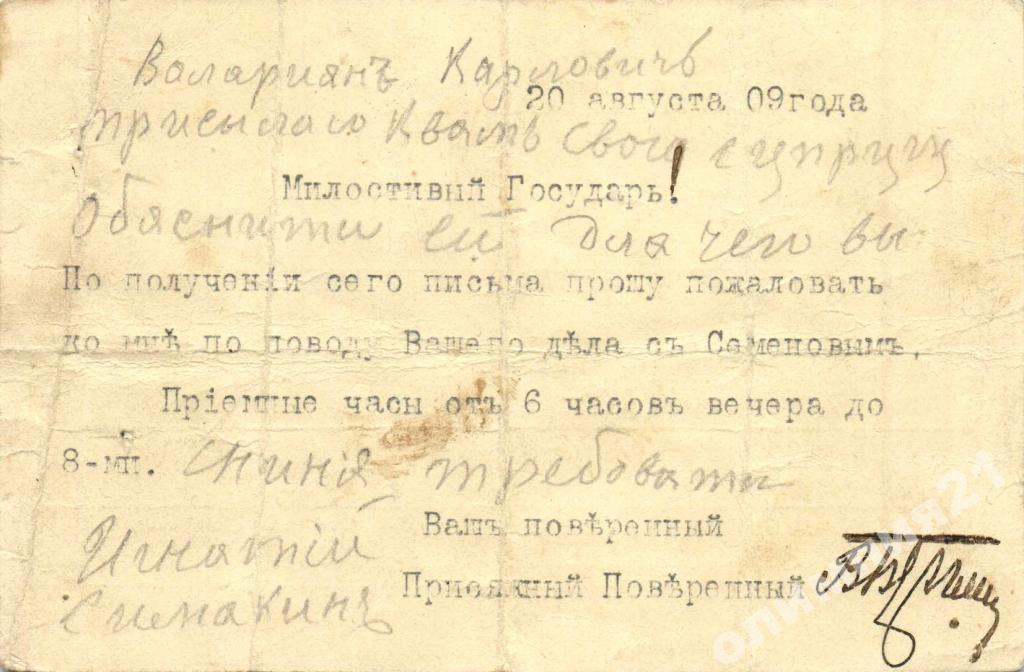 Валариянъ Карловичъ
20 августа 09 года
присылаю Квамъ свою
Милостивый Государь!
Обяснити ей для чего вы
По полученіи сего письма прошу пожаловать
ко мнѣ по поводу Вашего дѣла съ Семеновымъ.
Пріемные часы отъ 6 часовъ вечера до
8-ми.
требовати
Вашъ повѣренный
Игнатій
Присяжный Повѣренный
Симакинъ
олимпия21